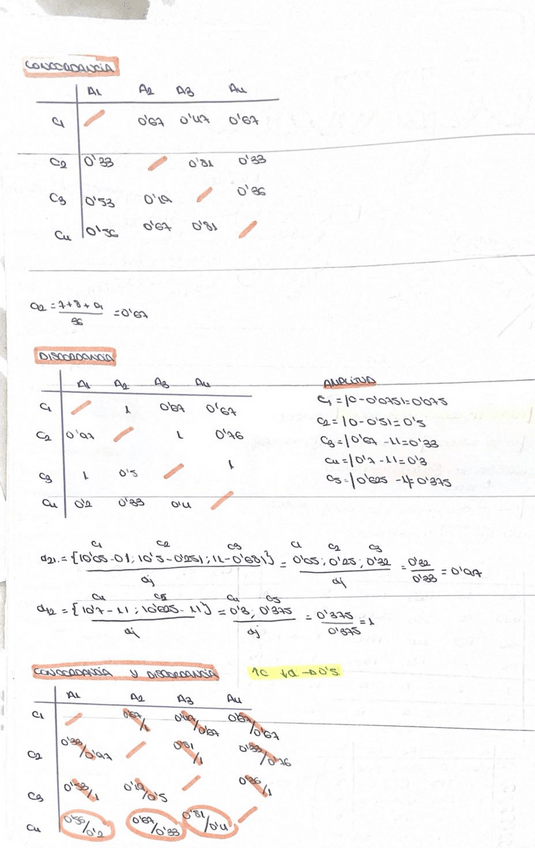 CONCORDANCIA
A1 A2 A3 A4
C1 0'67 0'47 0'67
C2 0'33 0'81 0'33
C3 0'53 0'19 0'36
C4 0'56 0'67 0'81
= 7+8+9 / 36 = 0'67
DISCORDANCIA
A1 A2 A3 A4
AMPLITUD
C1 1 0'67 0'67
C1 = |0-0'675|=0'675
C2 0'97 1 0'76
C2 = |0-0'5|=0'5
C3 = |0'67-1|=0'33
C3 1 0'5 1
C4 = |0'7-1|=0'3
C4 0'2 0'33 0'4
C5 = |0'625-1|=0'375
C1 C2 C3 C1 C2 C3
d21 = {|0'65-0|; |0'5-0'25|; |1-0'68|} / dj = 0'65; 0'25; 0'32 / dj = 0'32 / 0'33 = 0'97
C4 C5 C4 C5
d12 = {|0'7-1|; |0'625-1|} / dj = 0'3; 0'375 / dj = 0'375 / 0'375 = 1
CONCORDANCIA Y DISCORDANCIA ↑C ↓d → 0'5
A1 A2 A3 A4
C1 0'67/1 0'47/0'67 0'67/0'67
C2 0'33/0'97 0'81/1 0'33/0'76
C3 0'53/1 0'19/0'5 0'36/1
C4 0'56/0'2 0'67/0'33 0'81/0'4